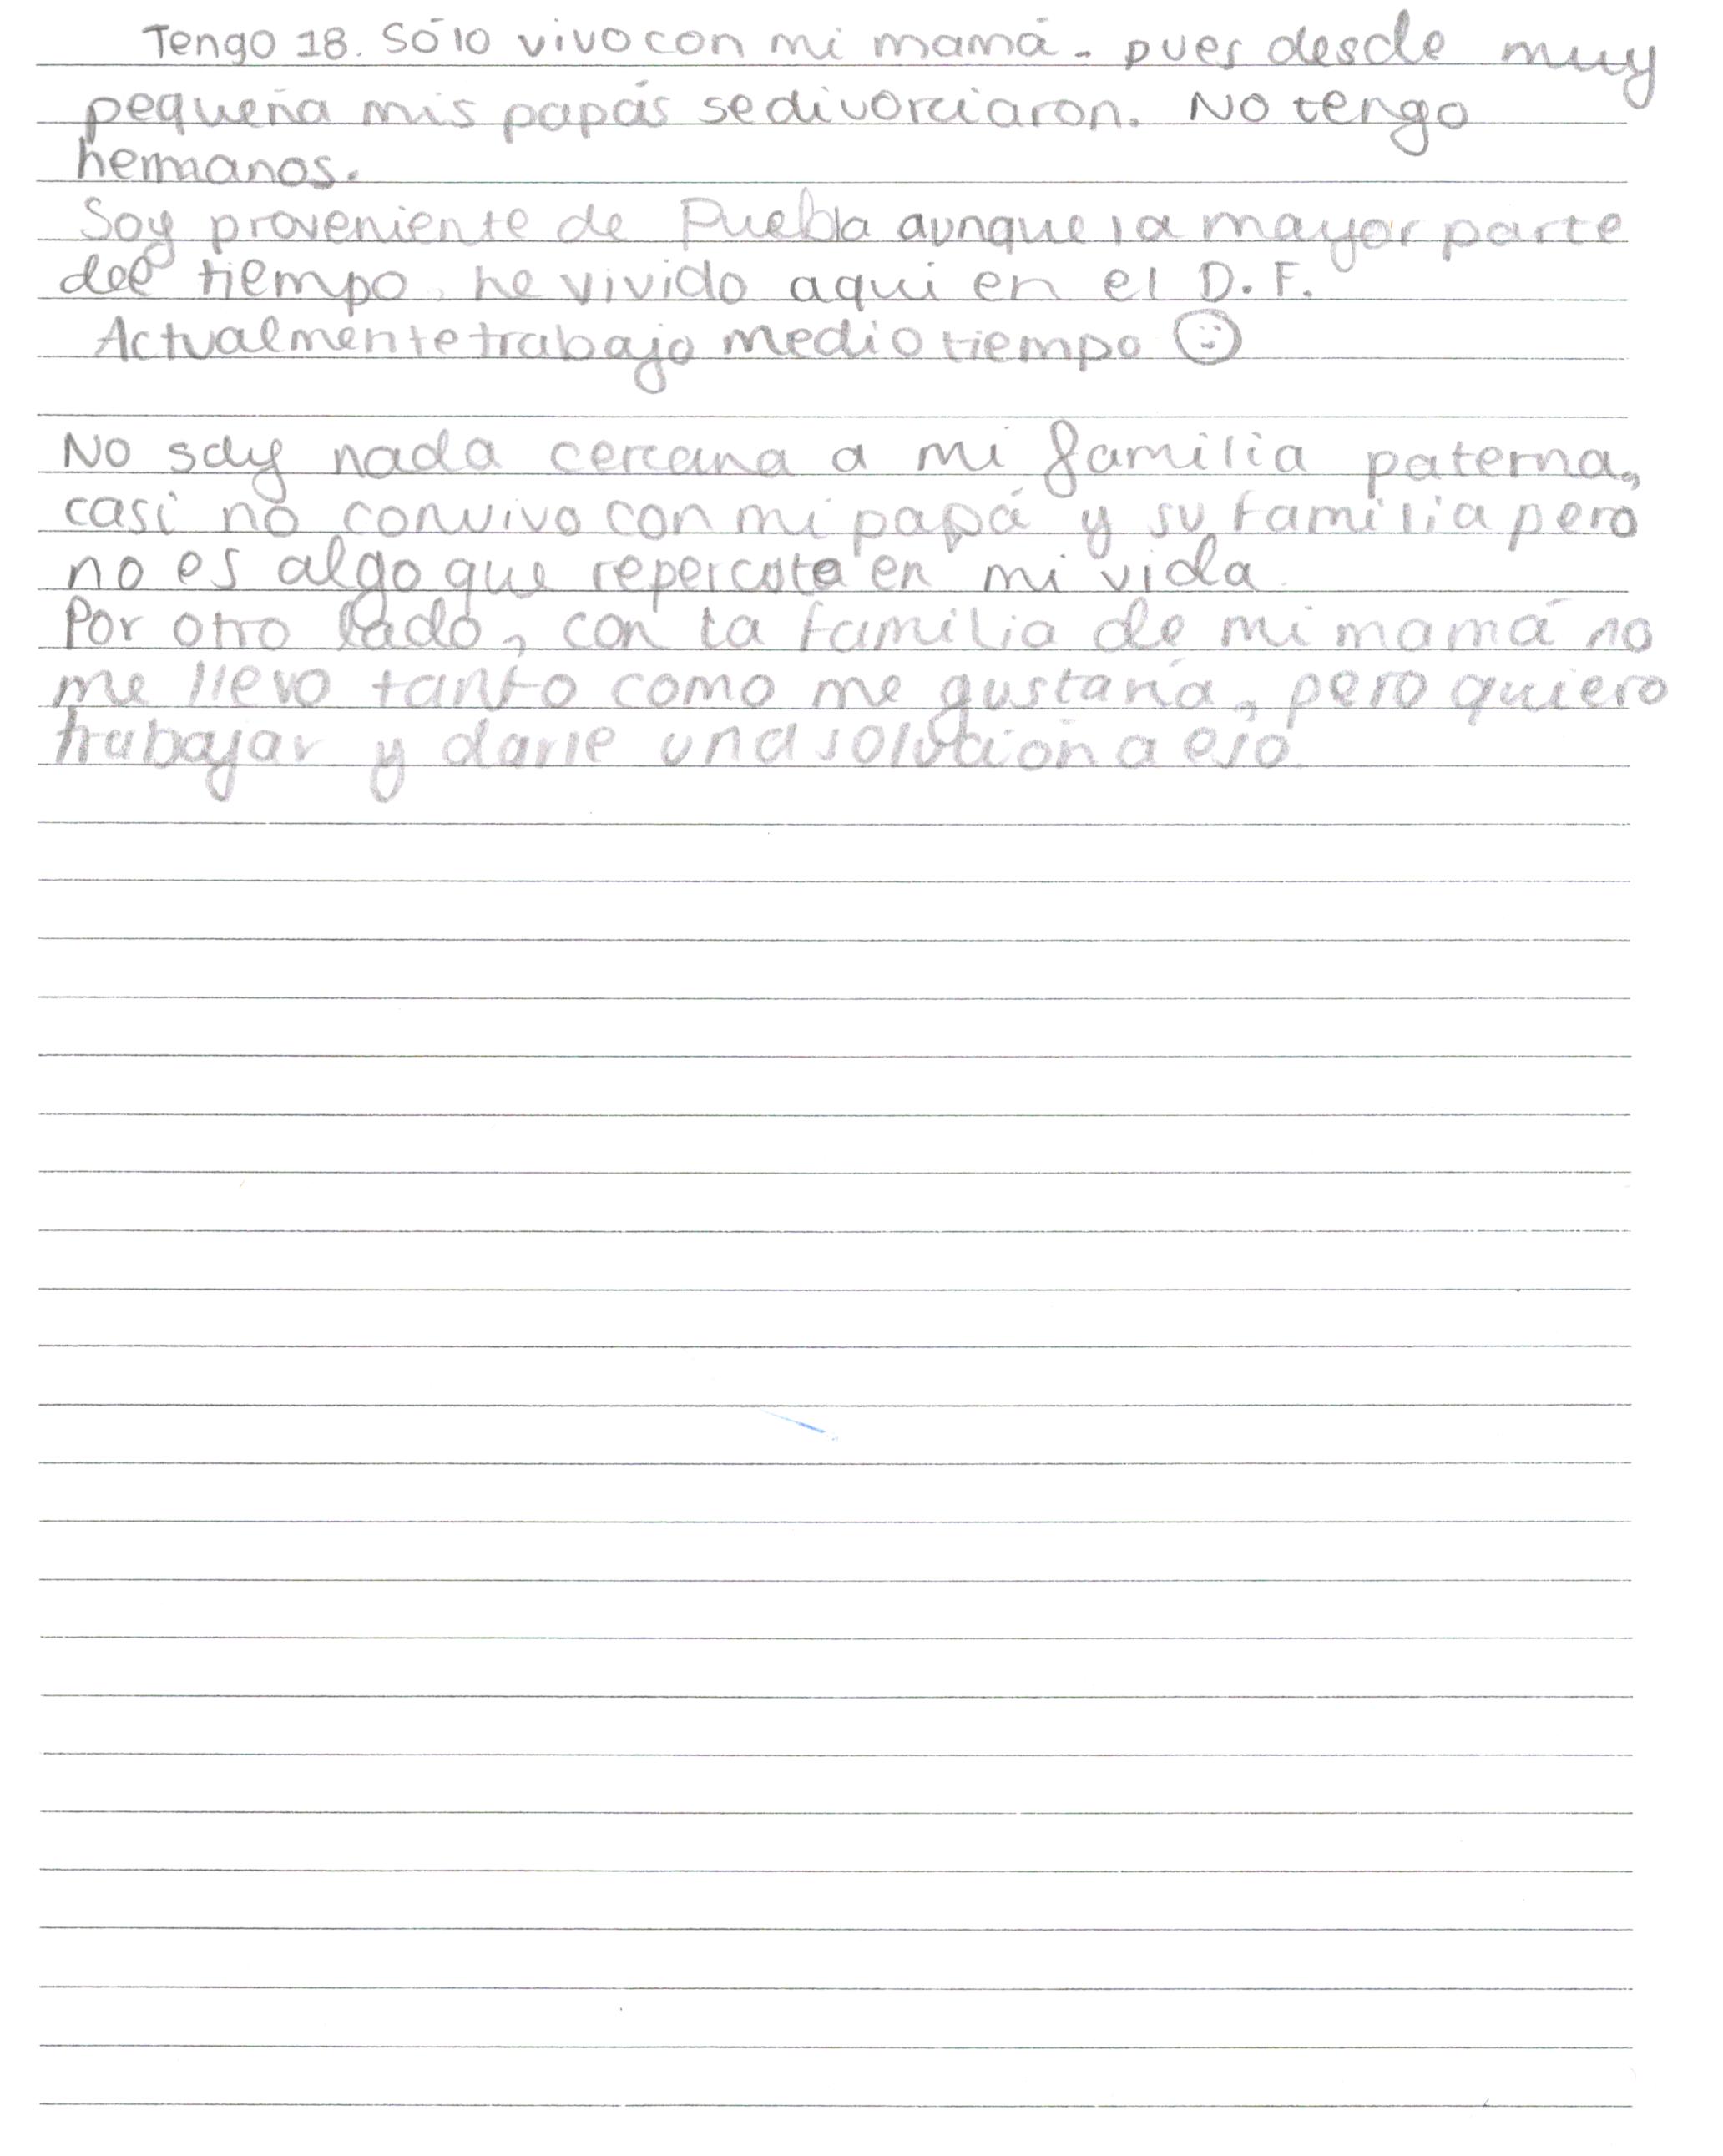 Tengo 18. Sólo vivo con mi mamá. pues desde muy
pequeña mis papás se divorciaron. No tengo
hermanos.
Soy proveniente de Puebla aunque la mayor parte
del tiempo, he vivido aqui en el D.F.
Actualmente trabajo medio tiempo ☺
No soy nada cercana a mi familia paterna,
casi no convivo con mi papá y su familia pero
no es algo que repercuta en mi vida.
Por otro lado, con la familia de mi mamá no
me llevo tanto como me gustaría, pero quiero
trabajar y darle una solución a eso.